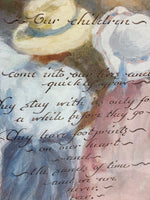 Our children
come into our lives and
quickly grow
They stay with us only fo
a while before they go
They leave footprints
on our heart
and
the sands of time
and we are
never